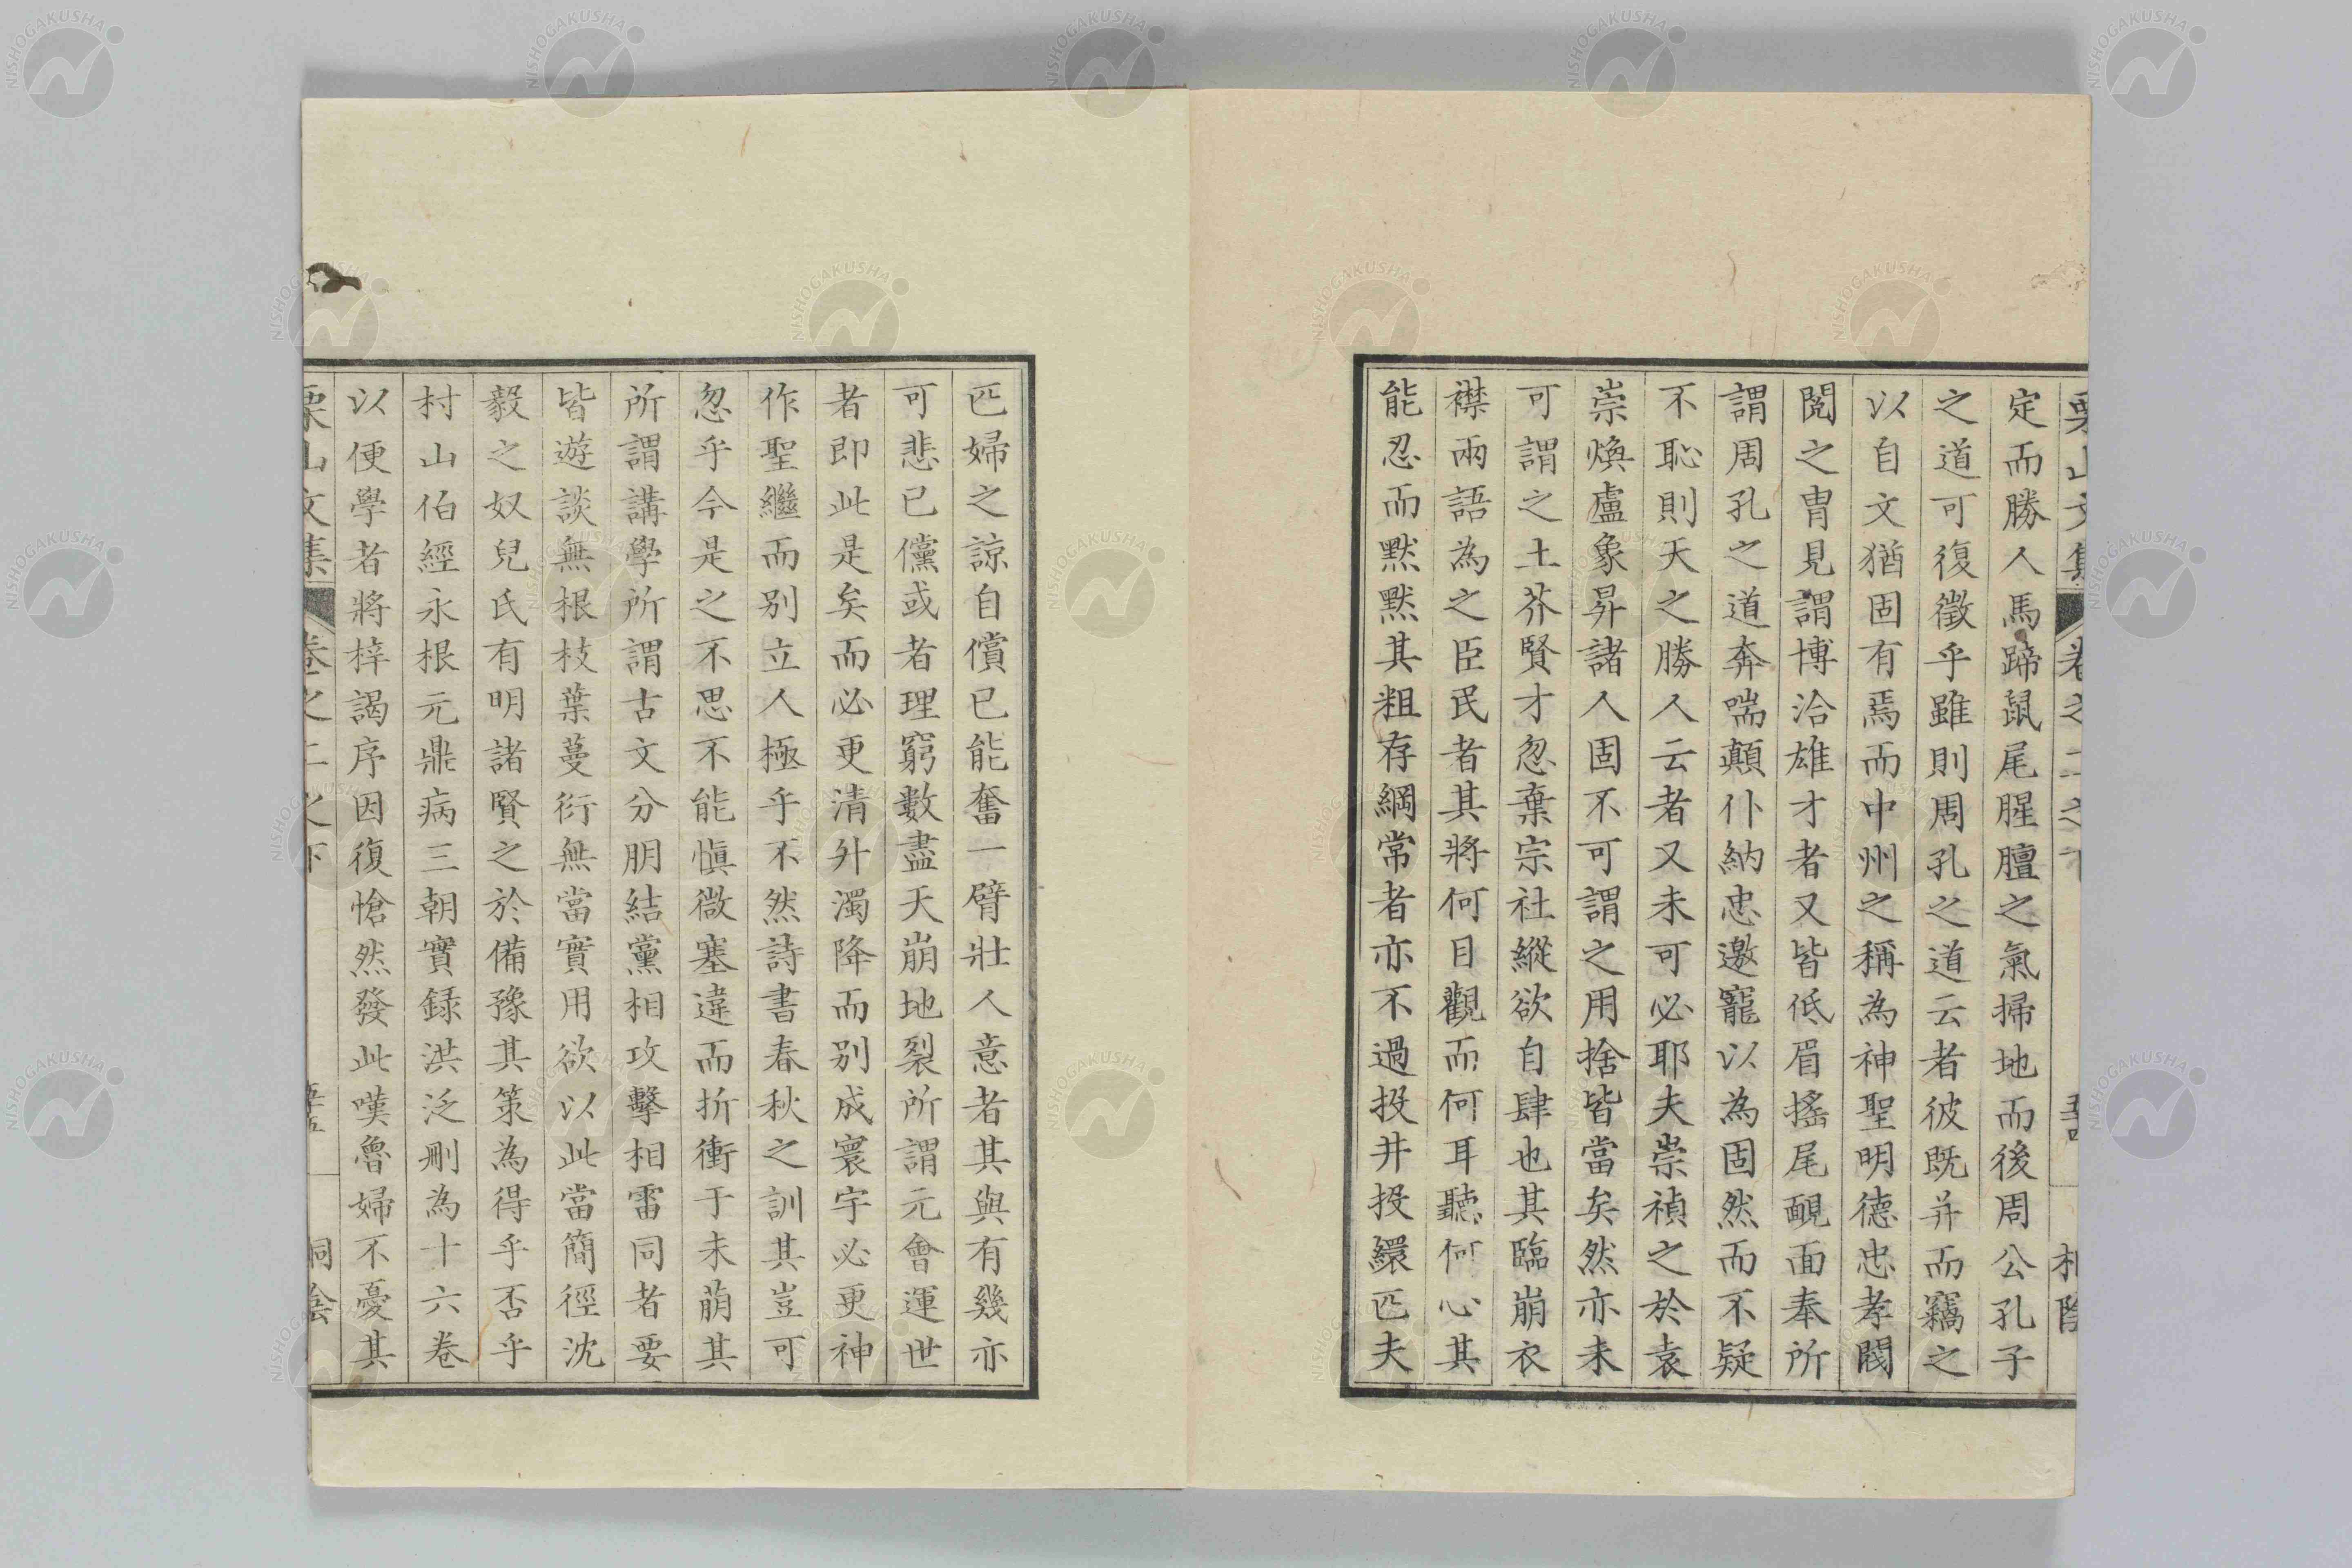 定而勝人馬蹄鼠尾腥膻之氣掃地而後周公孔子
之道可復徵乎雖則周孔之道云者彼既并而竊之
以自文猶固有焉而中州之稱為神聖明德忠孝閥
閱之胄見謂博洽雄才者又皆低眉搖尾靦面奉所
謂周孔之道奔喘顛仆納忠邀寵以為固然而不疑
不恥則天之勝人云者又未可必耶夫崇禎之於袁
崇煥盧象昇諸人固不可謂之用捨皆當矣然亦未
可謂之土芥賢才忽棄宗社縱欲自肆也其臨崩衣
襟兩語為之臣民者其將何目觀而何耳聽何心其
能忍而默默其粗存綱常者亦不過投井投繯匹夫
匹婦之諒自償已能奮一臂壯人意者其與有幾亦
可悲已儻或者理窮數盡天崩地裂所謂元會運世
者即此是矣而必更清升濁降而別成寰宇必更神
作聖繼而別立人極乎不然詩書春秋之訓其豈可
忽乎今是之不思不能慎微塞違而折衝于未萠其
所謂講學所謂古文分朋結黨相攻擊相雷同者要
皆遊談無根枝葉蔓衍無當實用欲以此當簡徑沈
毅之奴兒氏有明諸賢之於備豫其策為得乎否乎
村山伯經永根元鼎病三朝實録洪泛刪為十六卷
以便學者將梓謁序因復愴然發此嘆魯婦不憂其
栗山文集 卷之二之下
NISHOGAKUSHA